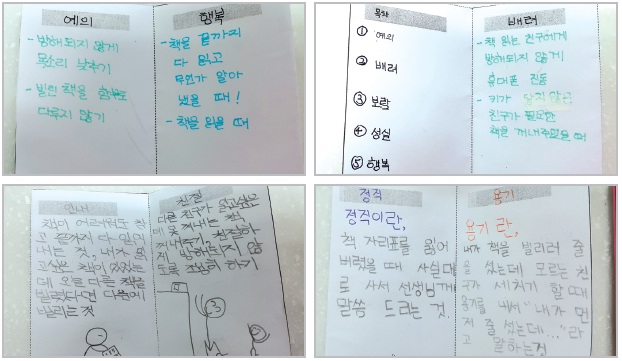 예의
- 방해되지 않게
목소리 낮추기
- 빌린 책을 함부로
다루지 않기
행복
- 책을 끝까지
다 읽고
무언가 알아
냈을 때!
- 책을 읽을 때
목차
① 예의
② 배려
③ 보람
④ 성실
⑤ 행복
배려
- 책 읽는 친구에게
방해되지 않게
휴대폰 진동
- 키가 닿지 않는
친구가 필요한
책을 꺼내주었을 때
인내
책이 어려워도 참
고 끝까지 다 읽어
내는 것, 내가 읽
고싶은 책이 있었는
데 오늘 다른 책을
빌렸다면 다음에
빌리는 것
친절
다른 친구가 읽고싶은
데 못 꺼내는 책,
꺼내주기, 친절하
게 방해되지 않
도록 조심히 하기
정직
정직이란,
책 자리표를 잃어
버렸을 때 사실대
로 사서 선생님께
말씀 드리는 것.
용기
용기란,
내가 책을 빌리러 줄
을 섰는데 모르는 친
구가 새치기 할 때
용기를 내서 "내가 먼
저 줄 섰는데..."라
고 말하는거